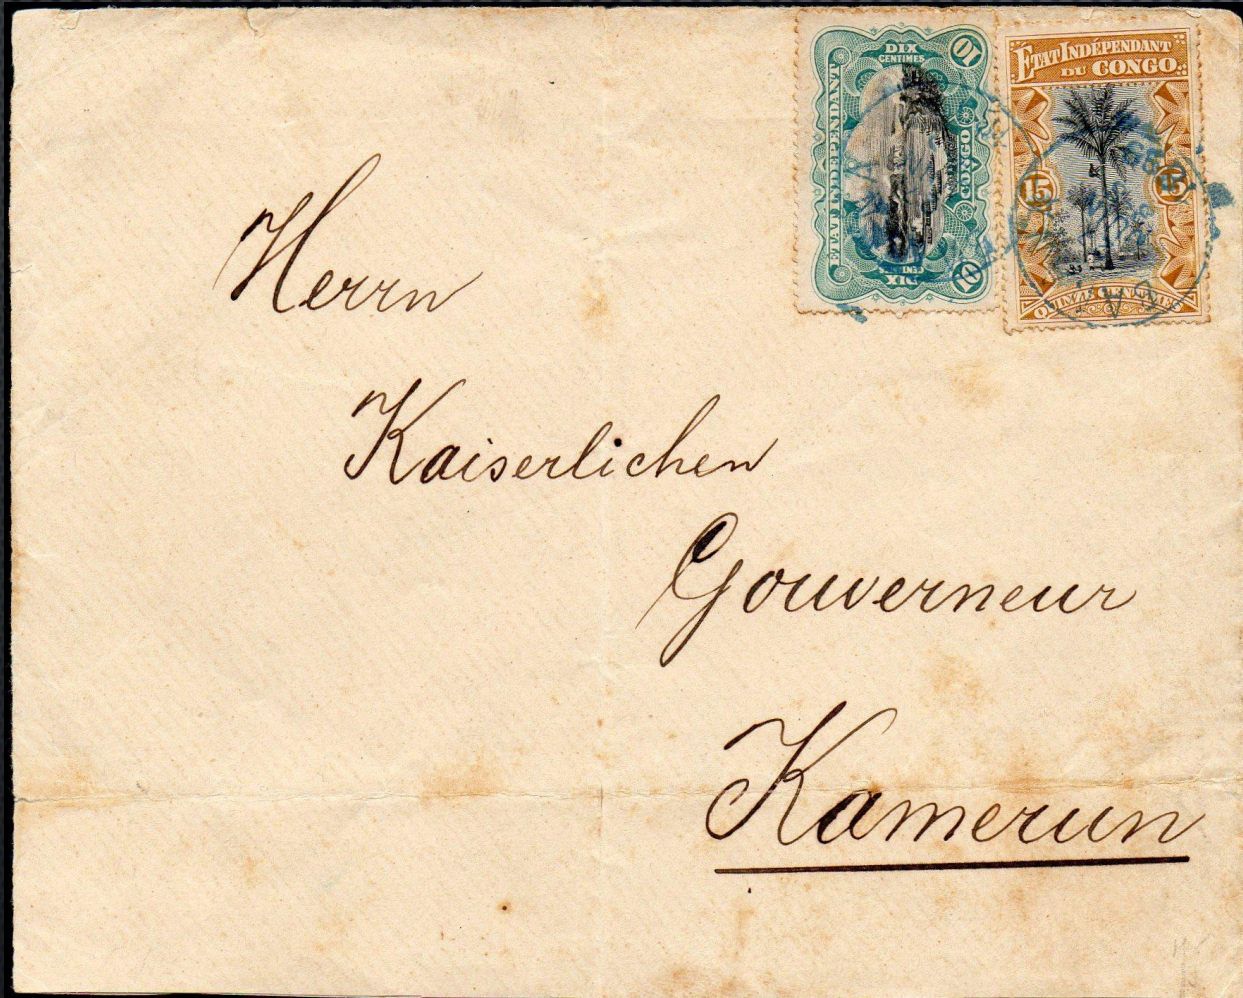 DIX
CENTIMES
10
ETAT INDEPENDANT
CONGO
10
DIX
ETAT INDÉPENDANT
DU CONGO
15
15
QUINZE CENTIMES
Herrn
Kaiserlichen
Gouverneur
Kamerun